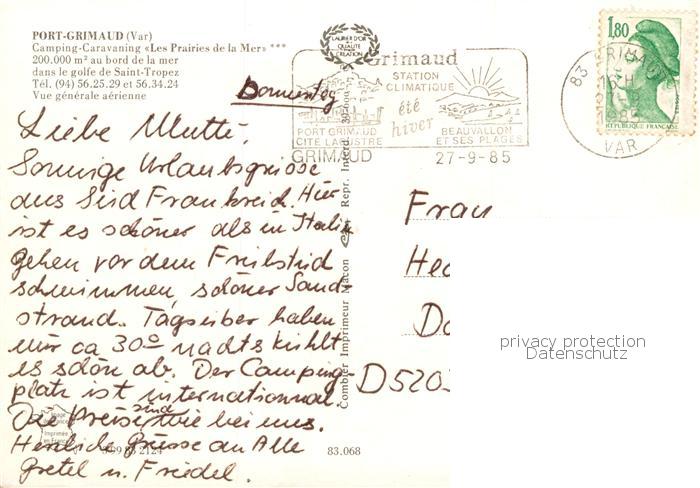 PORT-GRIMAUD (Var)
Camping-Caravaning «Les Prairies de la Mer» ***
200.000 m² au bord de la mer
dans le golfe de Saint-Tropez
Tél. (94) 56.25.29 et 56.34.24
Vue générale aérienne
LAURIER D'OR
DE LA
QUALITÉ
CRÉATION
Grimaud
STATION
CLIMATIQUE
été
hiver
PORT GRIMAUD
CITÉ LACUSTRE
BEAUVALLON
ET SES PLAGES
GRIMAUD 27-9-85
83 GRIMAUD
16H
27-9
1985
VAR
1,80
REPUBLIQUE FRANÇAISE
Donnerstag
Liebe Mutti,
Sonnige Urlaubsgrüsse
aus Süd Frankreich. Hier
ist es schöner als in Italien
gehen vor dem Frühstück
schwimmen, schöner Sand-
strand. Tagsüber haben
wir ca 30° nachts kühlt
es schön ab. Der Camping-
platz ist international.
Die Preise sind wie bei uns.
Herzliche Grüsse an Alle
Gretel u. Friedel.
Combier Imprimeur Macon
Repr. Interd.
Frau
Hec
D5205
privacy protection
Datenschutz
Imprimée
en France
83.068